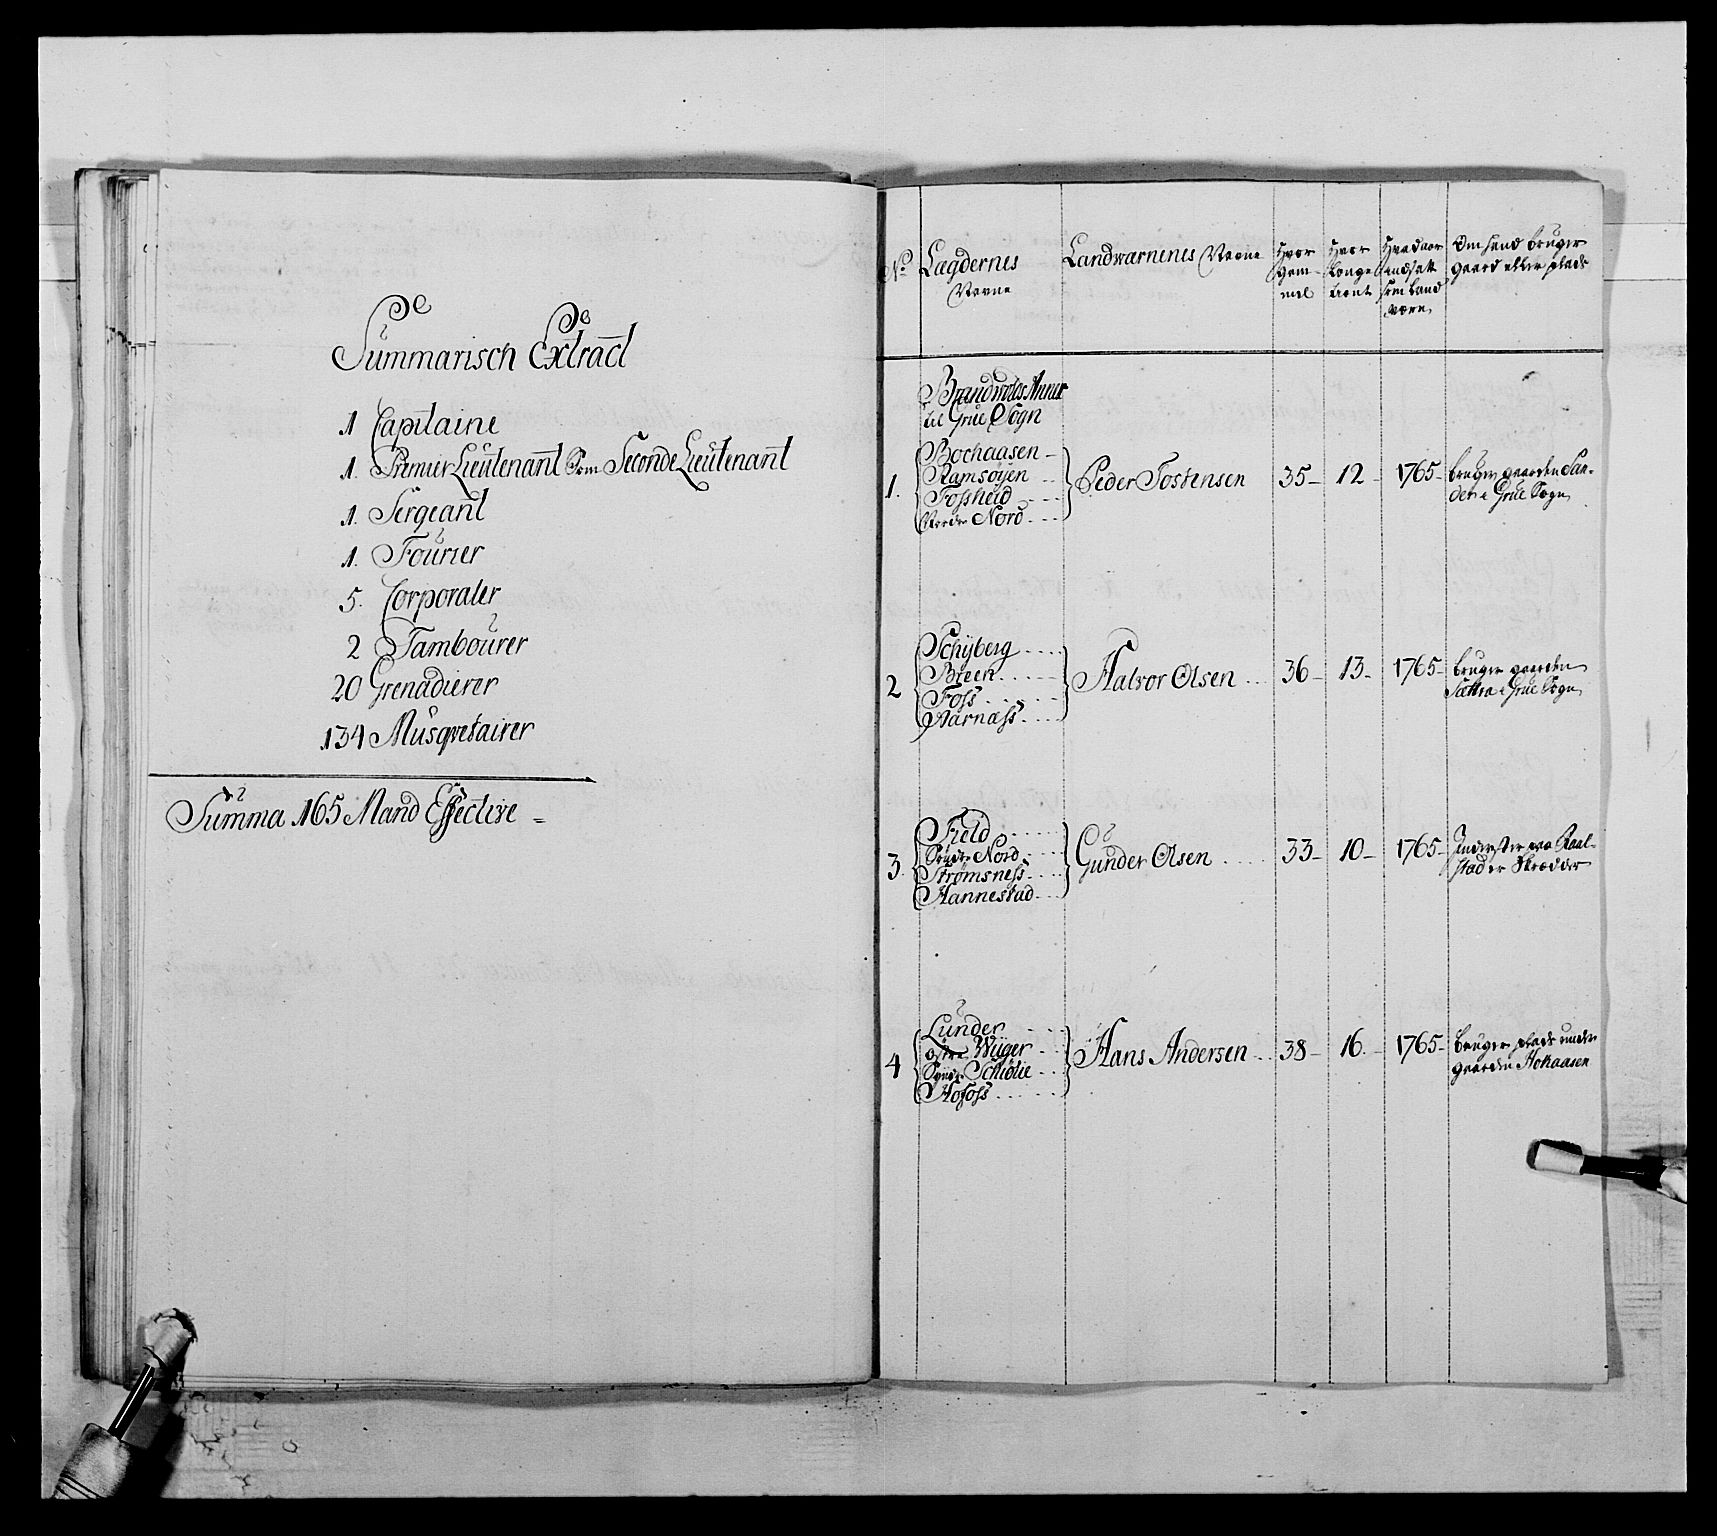 Summarisch Extract
1 Capitaine
1. Premier Lieutenant Som Seconde Lieutenant
1. Sergeant
1. Fourier
5. Corporaler
2 Tambourer
20 Grenadierer
134 Musqvetairer
Summa 165 Mand Effective
No. Lægdernes Navne Landværnenes Navne Hvor Gammel Hvor Længe tient Hvad aar indsatt som Land værn Om hand bruger gaard eller plads
Brandvolds Annex
til Grue Sogn
1. Bochaasen Ramsøyen Fossheid Nordre Nord Peder Tostensen 35 12 1765 bruger gaarden San-
den i Grue Sogn
2 Schyberg Breen Foss Aarnæss Halvor Olsen 36 13 1765 bruger gaarden
Sættra i Grue Sogn
3. Field Søndre Nord Strømsness Hannestad Gunder Olsen 33 10 1765 Inderster paa Kaal-
stad er Skrædder
4 Lunder østre Wiiger Søndre Schiølie Hofoss Hans Andersen 38 16 1765 bruger plads under
gaarden Hokaasen